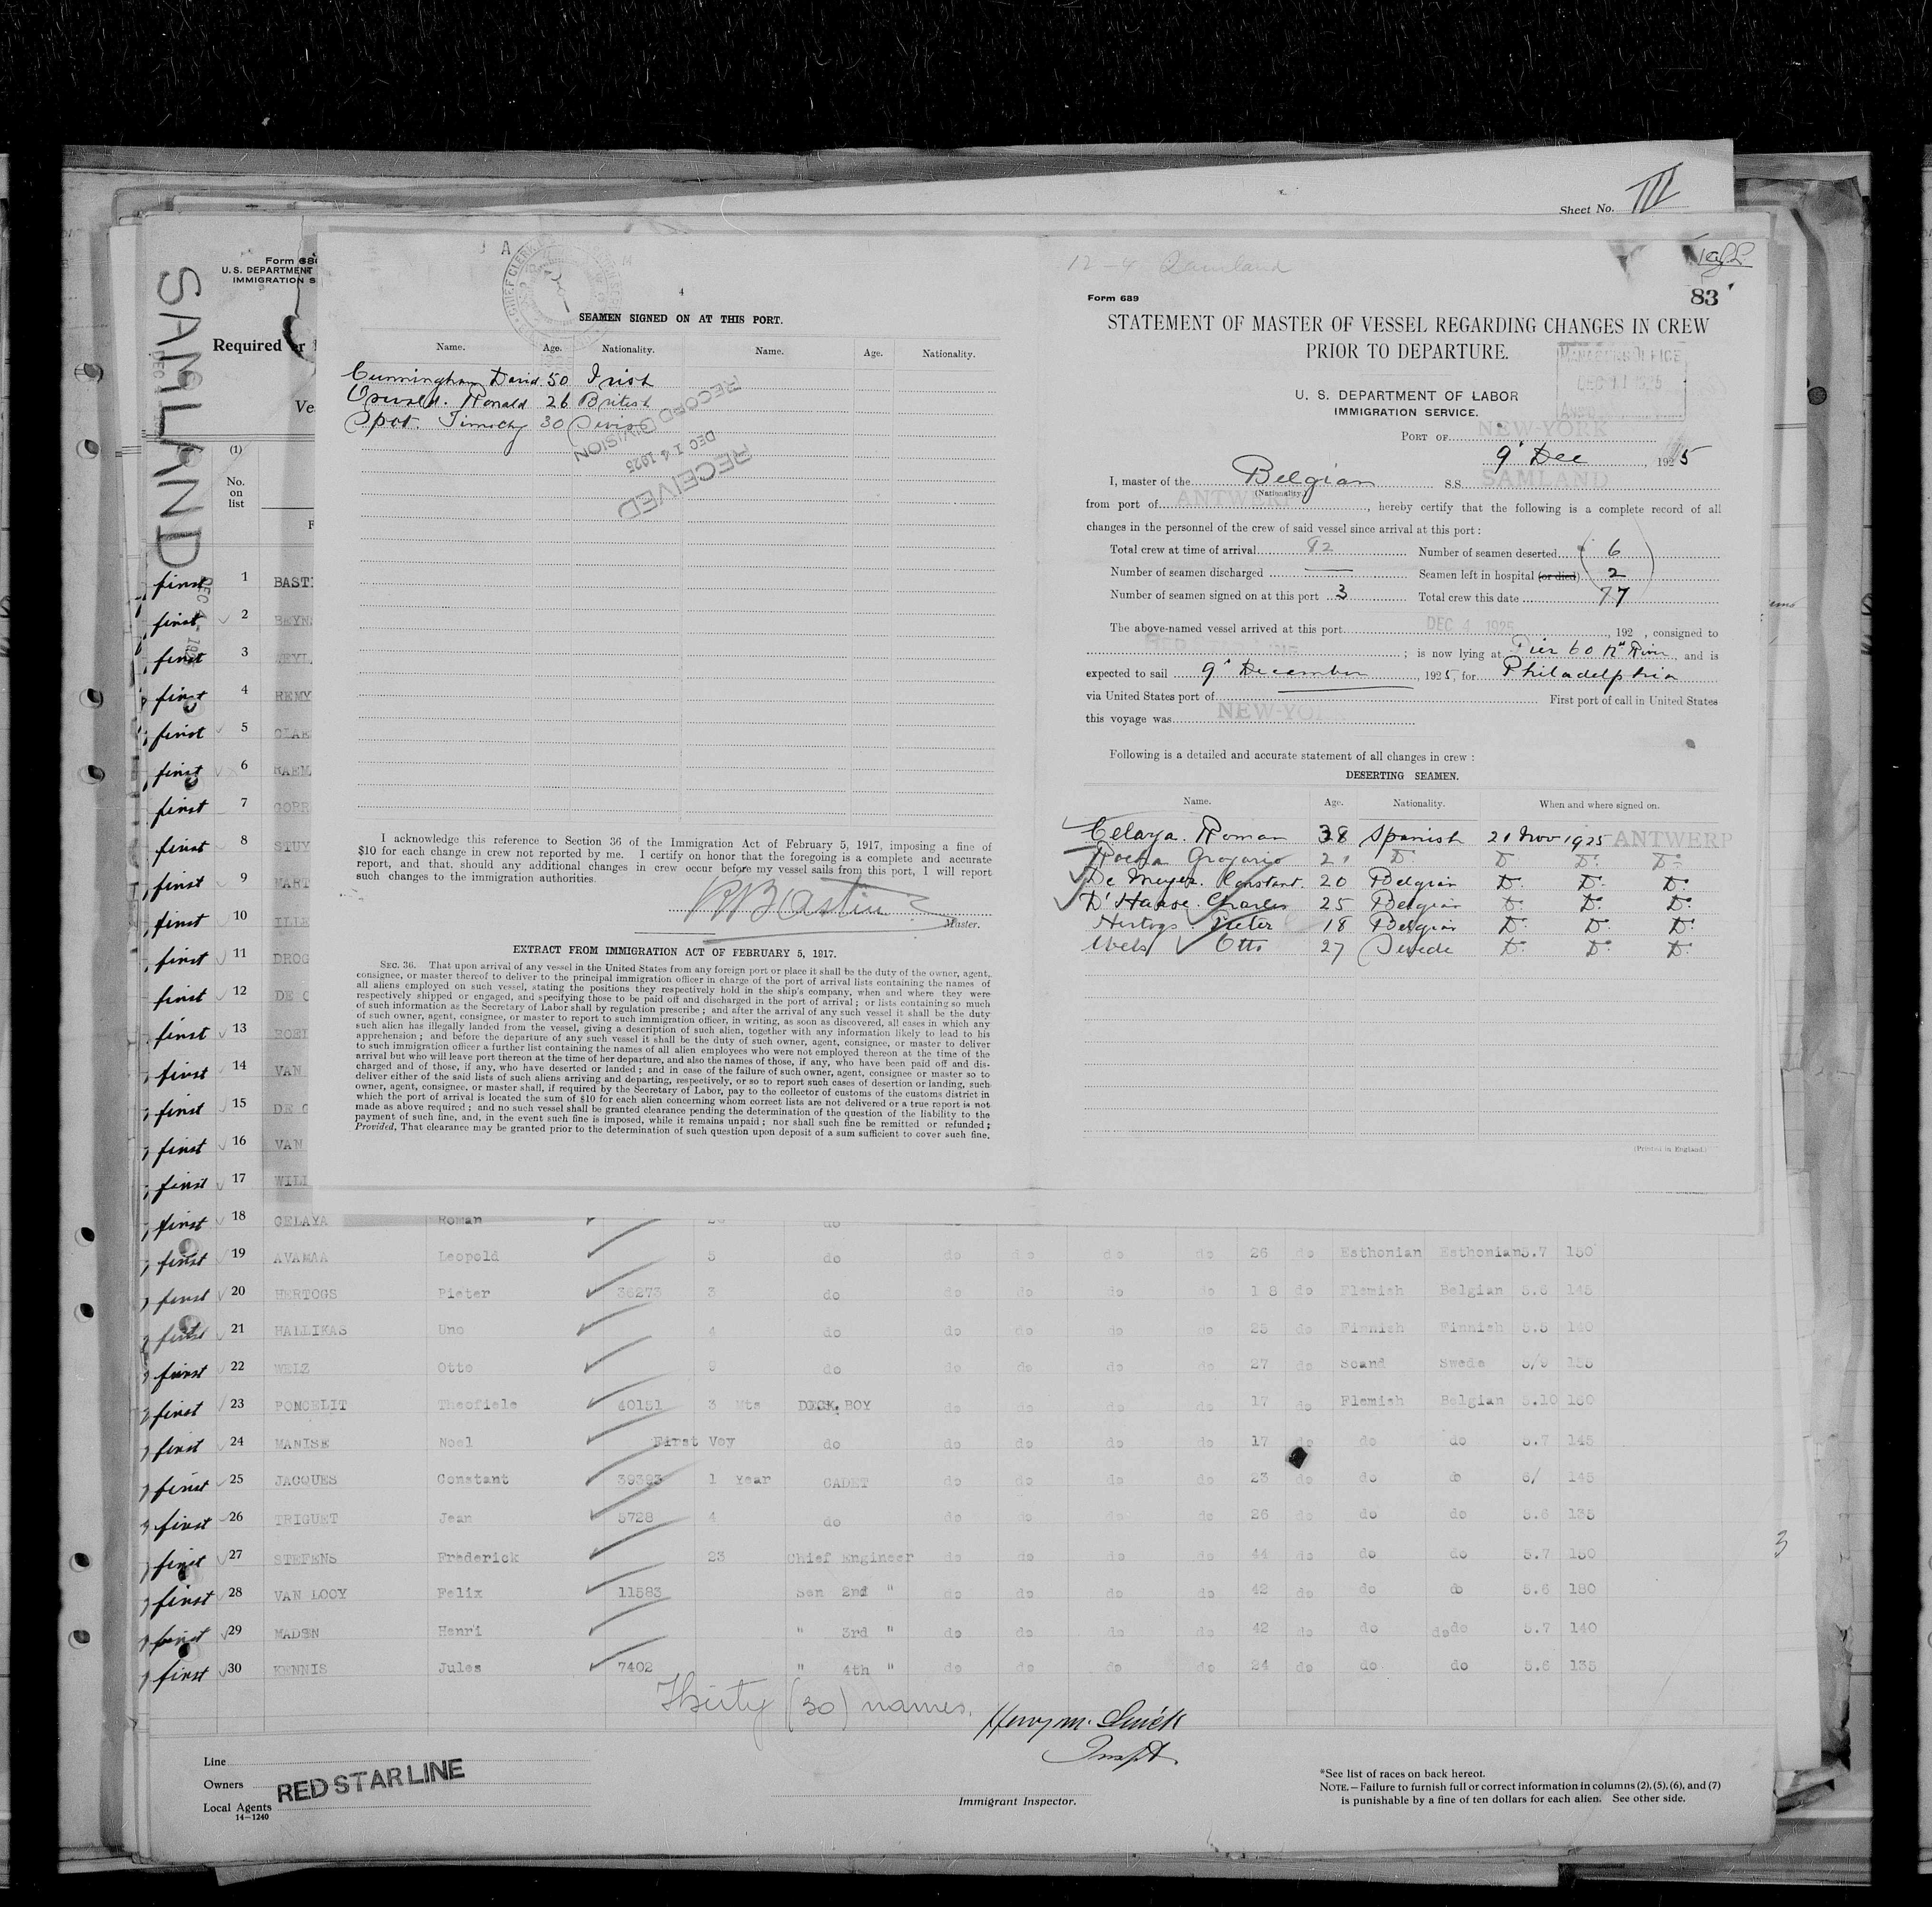 Sheet No. III
SAMLAND
Form 68
U. S. DEPARTMENT
IMMIGRATION S
Required
Ve
(1)
No.
on
list
4
SEAMEN SIGNED ON AT THIS PORT.
Name. Age. Nationality. Name. Age. Nationality.
Cunningham David 50 Irish
Ronald 26 British
Spot. Timothy 30
RECORD DIVISION
DEC 14 1925
RECEIVED
I acknowledge this reference to Section 36 of the Immigration Act of February 5, 1917, imposing a fine of
$10 for each change in crew not reported by me. I certify on honor that the foregoing is a complete and accurate
report, and that, should any additional changes in crew occur before my vessel sails from this port, I will report
such changes to the immigration authorities.
Bastin
Master.
EXTRACT FROM IMMIGRATION ACT OF FEBRUARY 5, 1917.
SEC. 36. That upon arrival of any vessel in the United States from any foreign port or place it shall be the duty of the owner, agent,
consignee, or master thereof to deliver to the principal immigration officer in charge of the port of arrival lists containing the names of
all aliens employed on such vessel, stating the positions they respectively hold in the ship's company, when and where they were
respectively shipped or engaged, and specifying those to be paid off and discharged in the port of arrival; or lists containing so much
of such information as the Secretary of Labor shall by regulation prescribe; and after the arrival of any such vessel it shall be the duty
of such owner, agent, consignee, or master to report to such immigration officer, in writing, as soon as discovered, all cases in which any
such alien has illegally landed from the vessel, giving a description of such alien, together with any information likely to lead to his
apprehension; and before the departure of any such vessel it shall be the duty of such owner, agent, consignee, or master to deliver
to such immigration officer a further list containing the names of all alien employees who were not employed thereon at the time of the
arrival but who will leave port thereon at the time of her departure, and also the names of those, if any, who have been paid off and dis-
charged and of those, if any, who have deserted or landed; and in case of the failure of such owner, agent, consignee or master so to
deliver either of the said lists of such aliens arriving and departing, respectively, or so to report such cases of desertion or landing, such
owner, agent, consignee, or master shall, if required by the Secretary of Labor, pay to the collector of customs of the customs district in
which the port of arrival is located the sum of $10 for each alien concerning whom correct lists are not delivered or a true report is not
made as above required; and no such vessel shall be granted clearance pending the determination of the question of the liability to the
payment of such fine, and, in the event such fine is imposed, while it remains unpaid; nor shall such fine be remitted or refunded;
Provided, That clearance may be granted prior to the determination of such question upon deposit of a sum sufficient to cover such fine.
12-4 Samland
Form 689
83
STATEMENT OF MASTER OF VESSEL REGARDING CHANGES IN CREW
PRIOR TO DEPARTURE.
DEC 11 1925
U. S. DEPARTMENT OF LABOR
IMMIGRATION SERVICE.
PORT OF NEW-YORK
9' Dec, 1925
I, master of the Belgian S.S. SAMLAND
(Nationality)
from port of ANTWERP, hereby certify that the following is a complete record of all
changes in the personnel of the crew of said vessel since arrival at this port:
Total crew at time of arrival 82 Number of seamen deserted 6
Number of seamen discharged — Seamen left in hospital (or died) 2
Number of seamen signed on at this port 3 Total crew this date 77
The above-named vessel arrived at this port DEC 4 1925, 192 , consigned to
; is now lying at Pier 60 Nth River, and is
expected to sail 9' December, 1925, for Philadelphia
via United States port of First port of call in United States
this voyage was NEW-YORK
Following is a detailed and accurate statement of all changes in crew:
DESERTING SEAMEN.
Name. Age. Nationality. When and where signed on.
Celaya. Roman 38 Spanish 21 Nov 1925 ANTWERP
Rocha Groyario 21 D: D D: D:
De Meyer. Constant. 20 Belgian D: D: D:
D'Haase. Charles 25 Belgian D: D: D:
Hertogs Pieter 18 Belgian D: D: D:
Welz Otto 27 Swede D: D: D:
(Printed in England)
first 1 BAST
first 2 BEYN
first 3 WEYL
first 4 REMY
first 5 CLAE
first 6 RAEM
first 7 GORR
first 8 STUY
first 9 MART
first 10 ILLE
first 11 DROG
first 12 DE C
first 13 ROEL
first 14 VAN
first 15 DE C
first 16 VAN
first 17 WILL
first 18 CELAYA Roman do
first 19 AVAMAA Leopold 5 do do do do do 26 do Esthonian Esthonian 5.7 150
first 20 HERTOGS Pieter 36273 3 do do do do do 1 8 do Flemish Belgian 5.6 145
first 21 HALLIKAS Uno 4 do do do do do 25 do Finnish Finnish 5.5 140
first 22 WELZ Otto 9 do do do do do 27 do Scand Swede 5/9 155
first 23 PONCELIT Theofiele 40151 3 Mts DECK BOY do do do do 17 do Flemish Belgian 5.10 150
first 24 MANISE Noel First Voy do do do do do 17 do do do 5.7 145
first 25 JACQUES Constant 39393 1 Year CADET do do do do 23 do do do 6/ 145
first 26 TRIGUET Jean 5728 4 do do do do do 26 do do do 5.6 135
first 27 STEFENS Frederick 23 Chief Engineer do do do do 44 do do do 5.7 150
first 28 VAN LOOY Felix 11583 Sen 2nd " do do do do 42 do do do 5.6 180
first 29 MADEN Henri " 3rd " do do do do 42 do do do do 5.7 140
first 30 KENNIS Jules 7402 " 4th " do do do do 24 do do do 5.6 135
Thirty (30) names.
Henry M. Quick
Inspt.
Line
Owners RED STAR LINE
Local Agents
14—1240
Immigrant Inspector.
*See list of races on back hereof.
NOTE.—Failure to furnish full or correct information in columns (2), (5), (6), and (7)
is punishable by a fine of ten dollars for each alien. See other side.
3